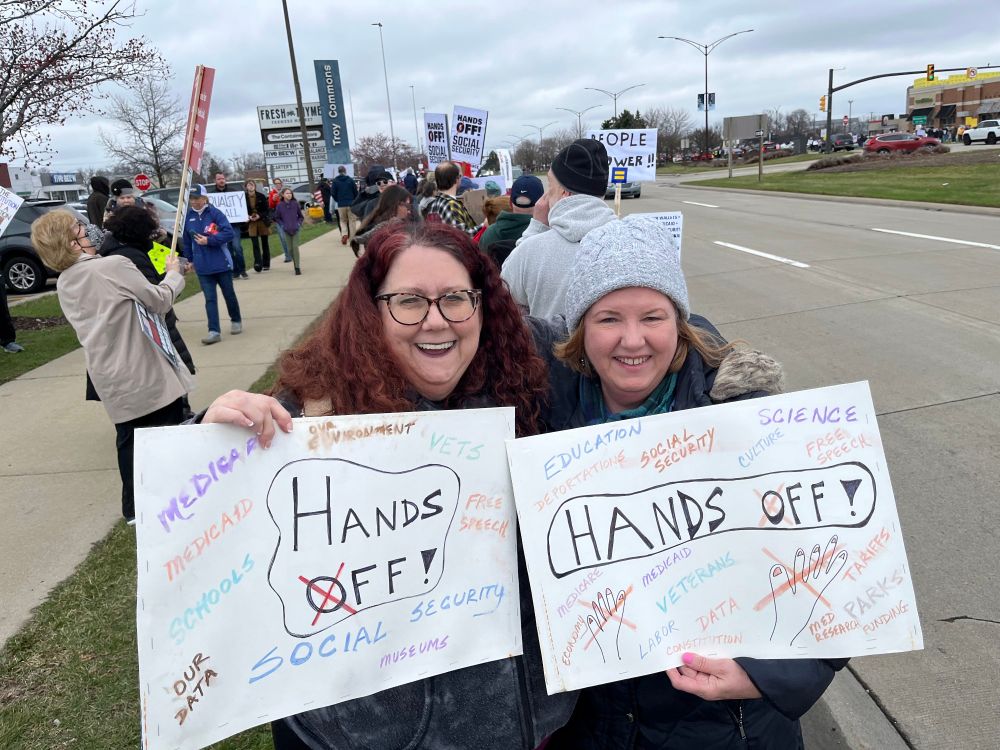 FRESH THYME
Troy Commons
FIVE BELOW
STOP
HANDS
OFF!
SOCIAL
HANDS
OFF!
SOCIAL
SECURITY
PEOPLE
POWER!!
EQUALITY
OUR
ENVIRONMENT
VETS
MEDICARE
HANDS
OFF!
MEDICAID
FREE
SPEECH
SCHOOLS
SOCIAL SECURITY
MUSEUMS
OUR
DATA
EDUCATION
SOCIAL
SECURITY
CULTURE
SCIENCE
DEPORTATIONS
FREE
SPEECH
HANDS OFF!
MEDICARE
MEDICAID
TARIFFS
VETERANS
ECONOMY
LABOR
DATA
CONSTITUTION
MED
RESEARCH
PARKS
FUNDING